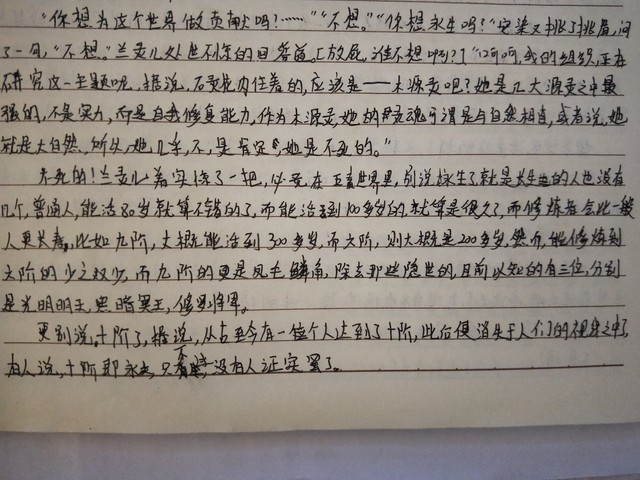 “你想为这个世界做贡献吗?……”“不想。”“你想永生吗?”安染又挑了挑眉,问
了一句,“不想。”兰灵儿处世不惊的回答道。[放屁,谁不想啊?]“呵呵,我的组织,正在
研究这一主题呢,据说,石灵龙内住着的,应该是——木源灵吧?她是几大源灵之中最
强的,不是实力,而是自我修复能力,作为木源灵,她的灵魂可谓是与自然相直,或者说,她
就是大自然,所以,她几乎,不,是肯定,她是不死的。”
不死的!兰灵儿着实惊了一把,必竟,在五灵世界里,别说永生了就是长生的人也没有
几个,普通人,能活80岁就算不错的了,而能活到100多岁的,就算是很久了,而修炼者会比一般
人更长寿,比如九阶,大概能活到300多岁,而六阶,则大概是200多岁,然而,能修炼到
六阶的少之又少,而九阶的更是凤毛麟角,除去那些隐世的,目前以知的有三位,分别
是光明明王,黑暗冥王,修罗将军。
更别说,十阶了,据说,从古至今有一位个人达到了十阶,此后便消失于人们的视线之中了,
有人说,十阶即永生,只不过,没有人证实罢了。